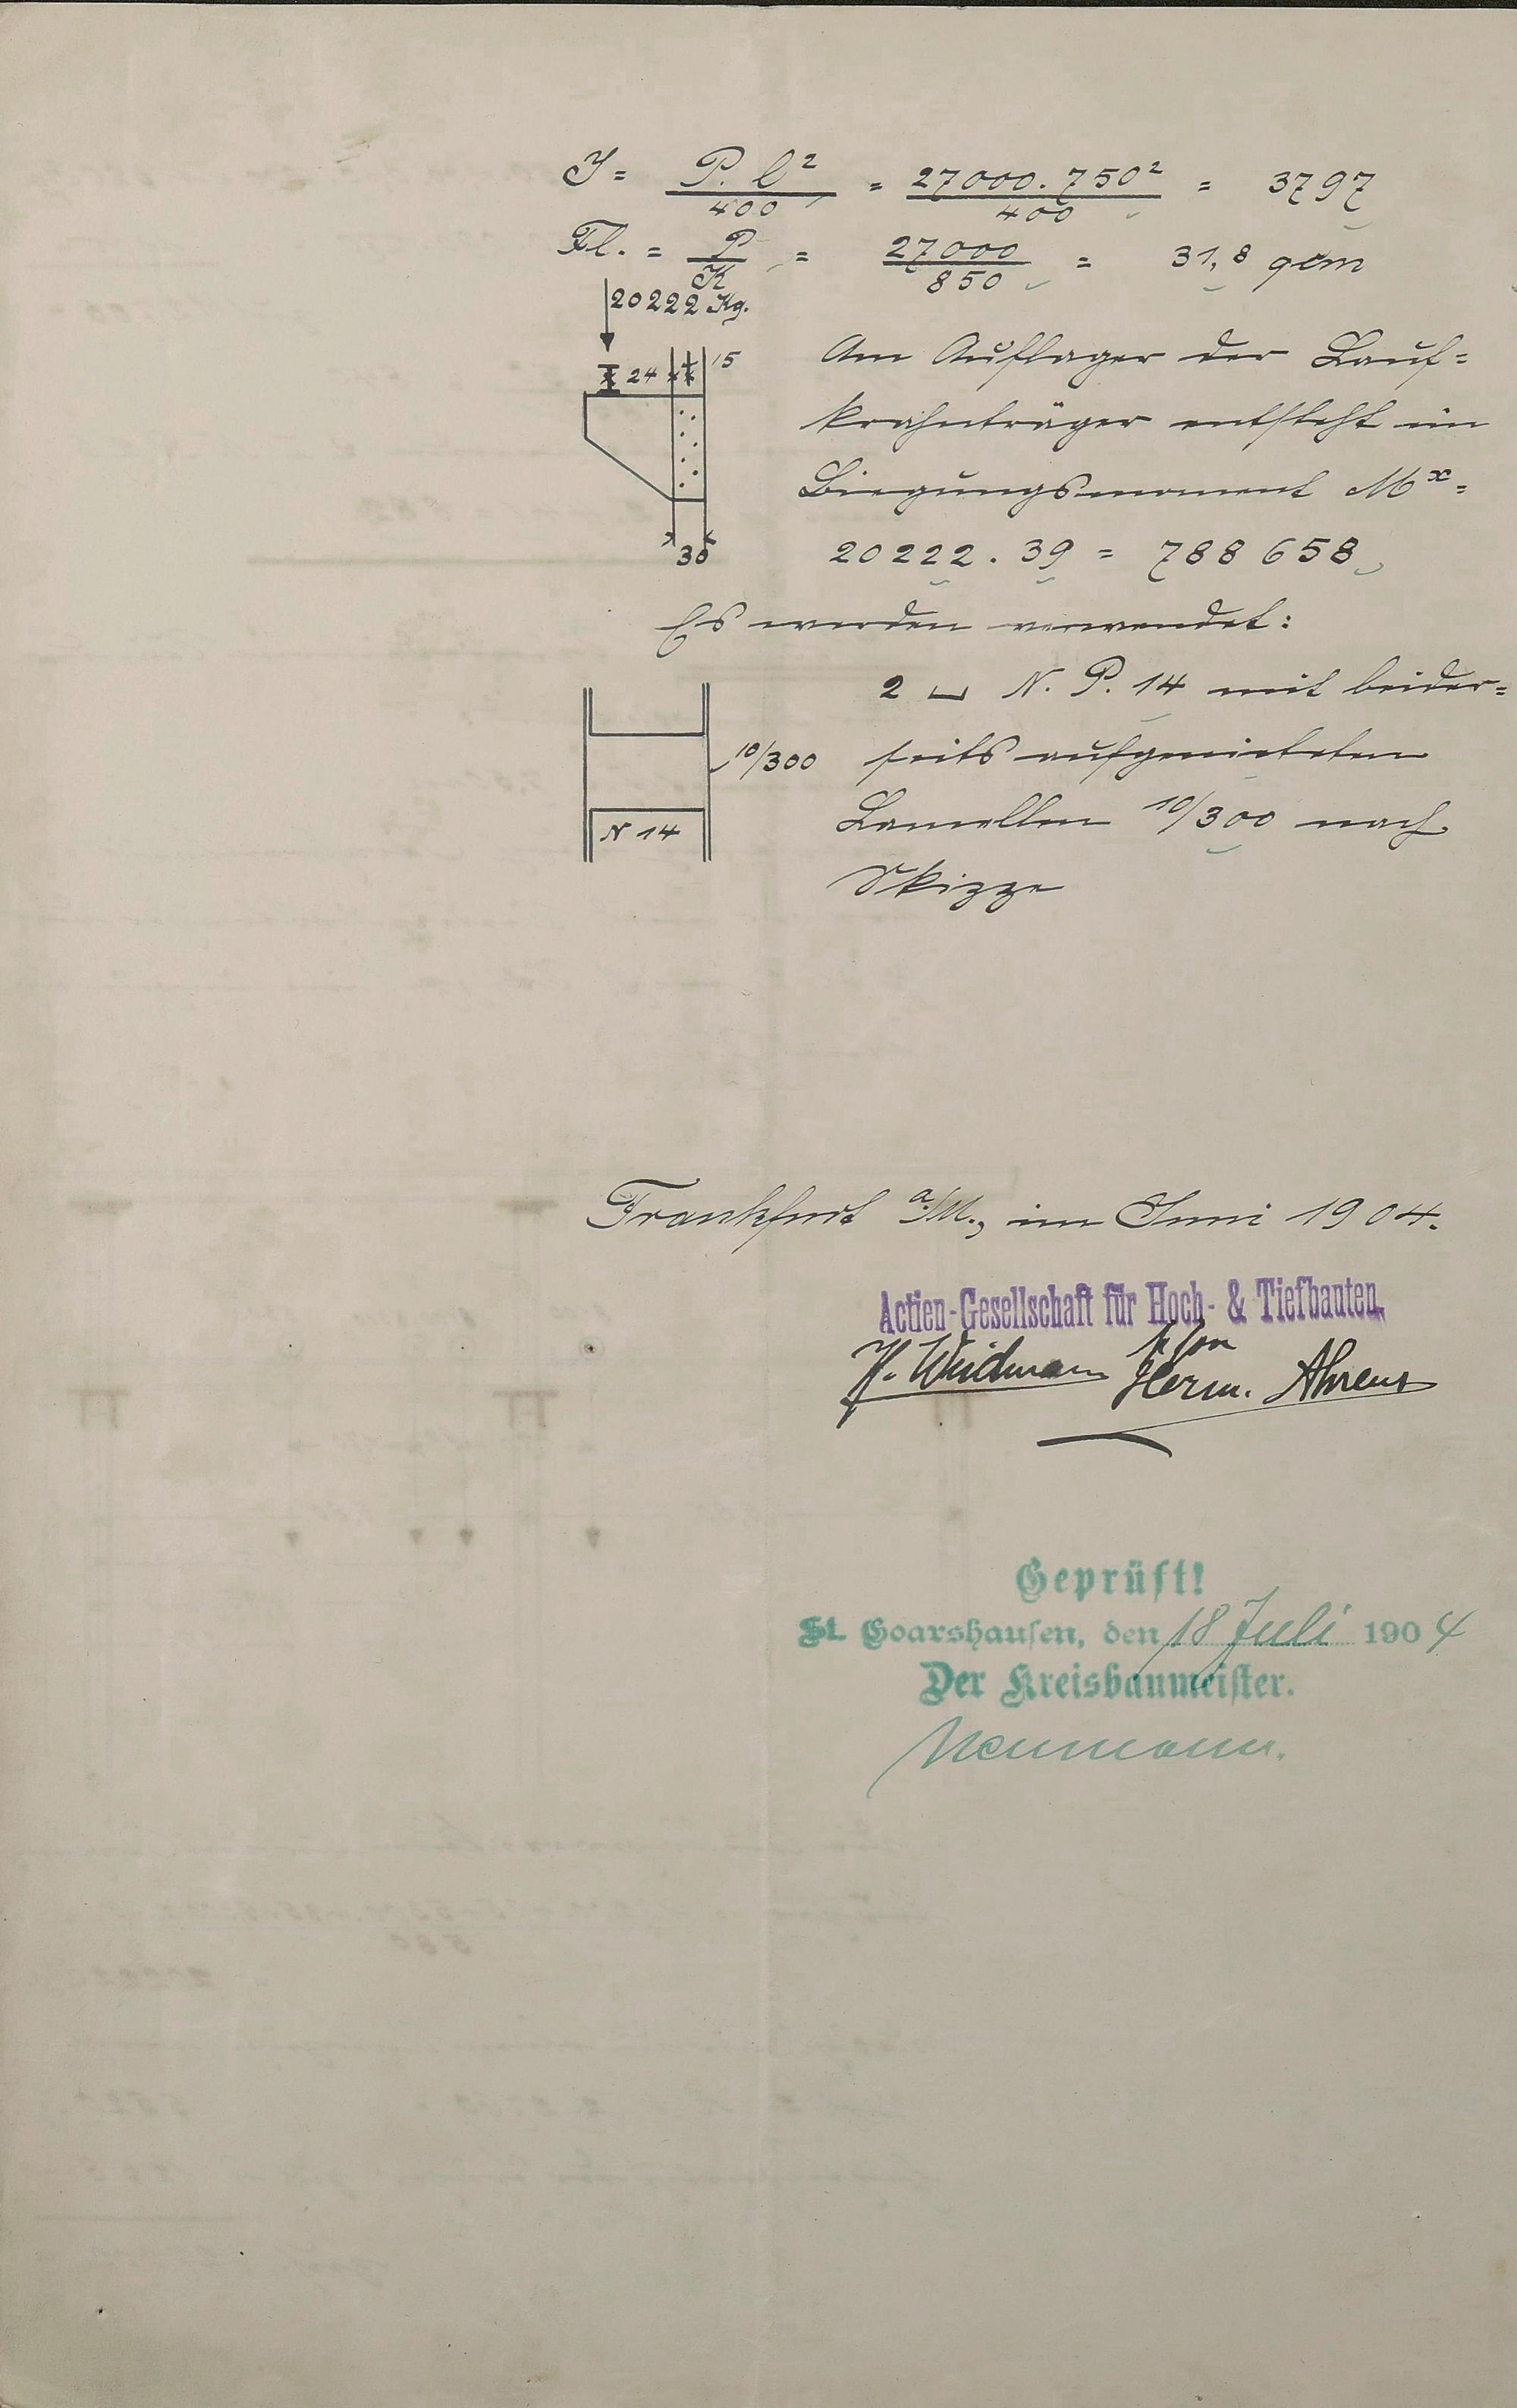 J = P. l² / 400 = 27000. 750² / 400 = 3797
Fl. = P / K = 27000 / 850 = 31,8 qcm
20222 Kg.
24 15
30
Am Auflager der Lauf=
krahnträger entsteht ein
Biegungsmoment Mˣ =
20222. 39 = 788 658
Es werden verwendet:
2 ⊔ N. P. 14 mit beider=
seits aufgenieteten
Lamellen 10/300 nach
Skizze
10/300
N 14
Frankfurt a/M., im Juni 1904.
Actien-Gesellschaft für Hoch- & Tiefbauten
H. Weidmann
Herm. Ahrens
Geprüft!
St. Goarshausen, den 18 Juli 1904
Der Kreisbaumeister.
Neumann.